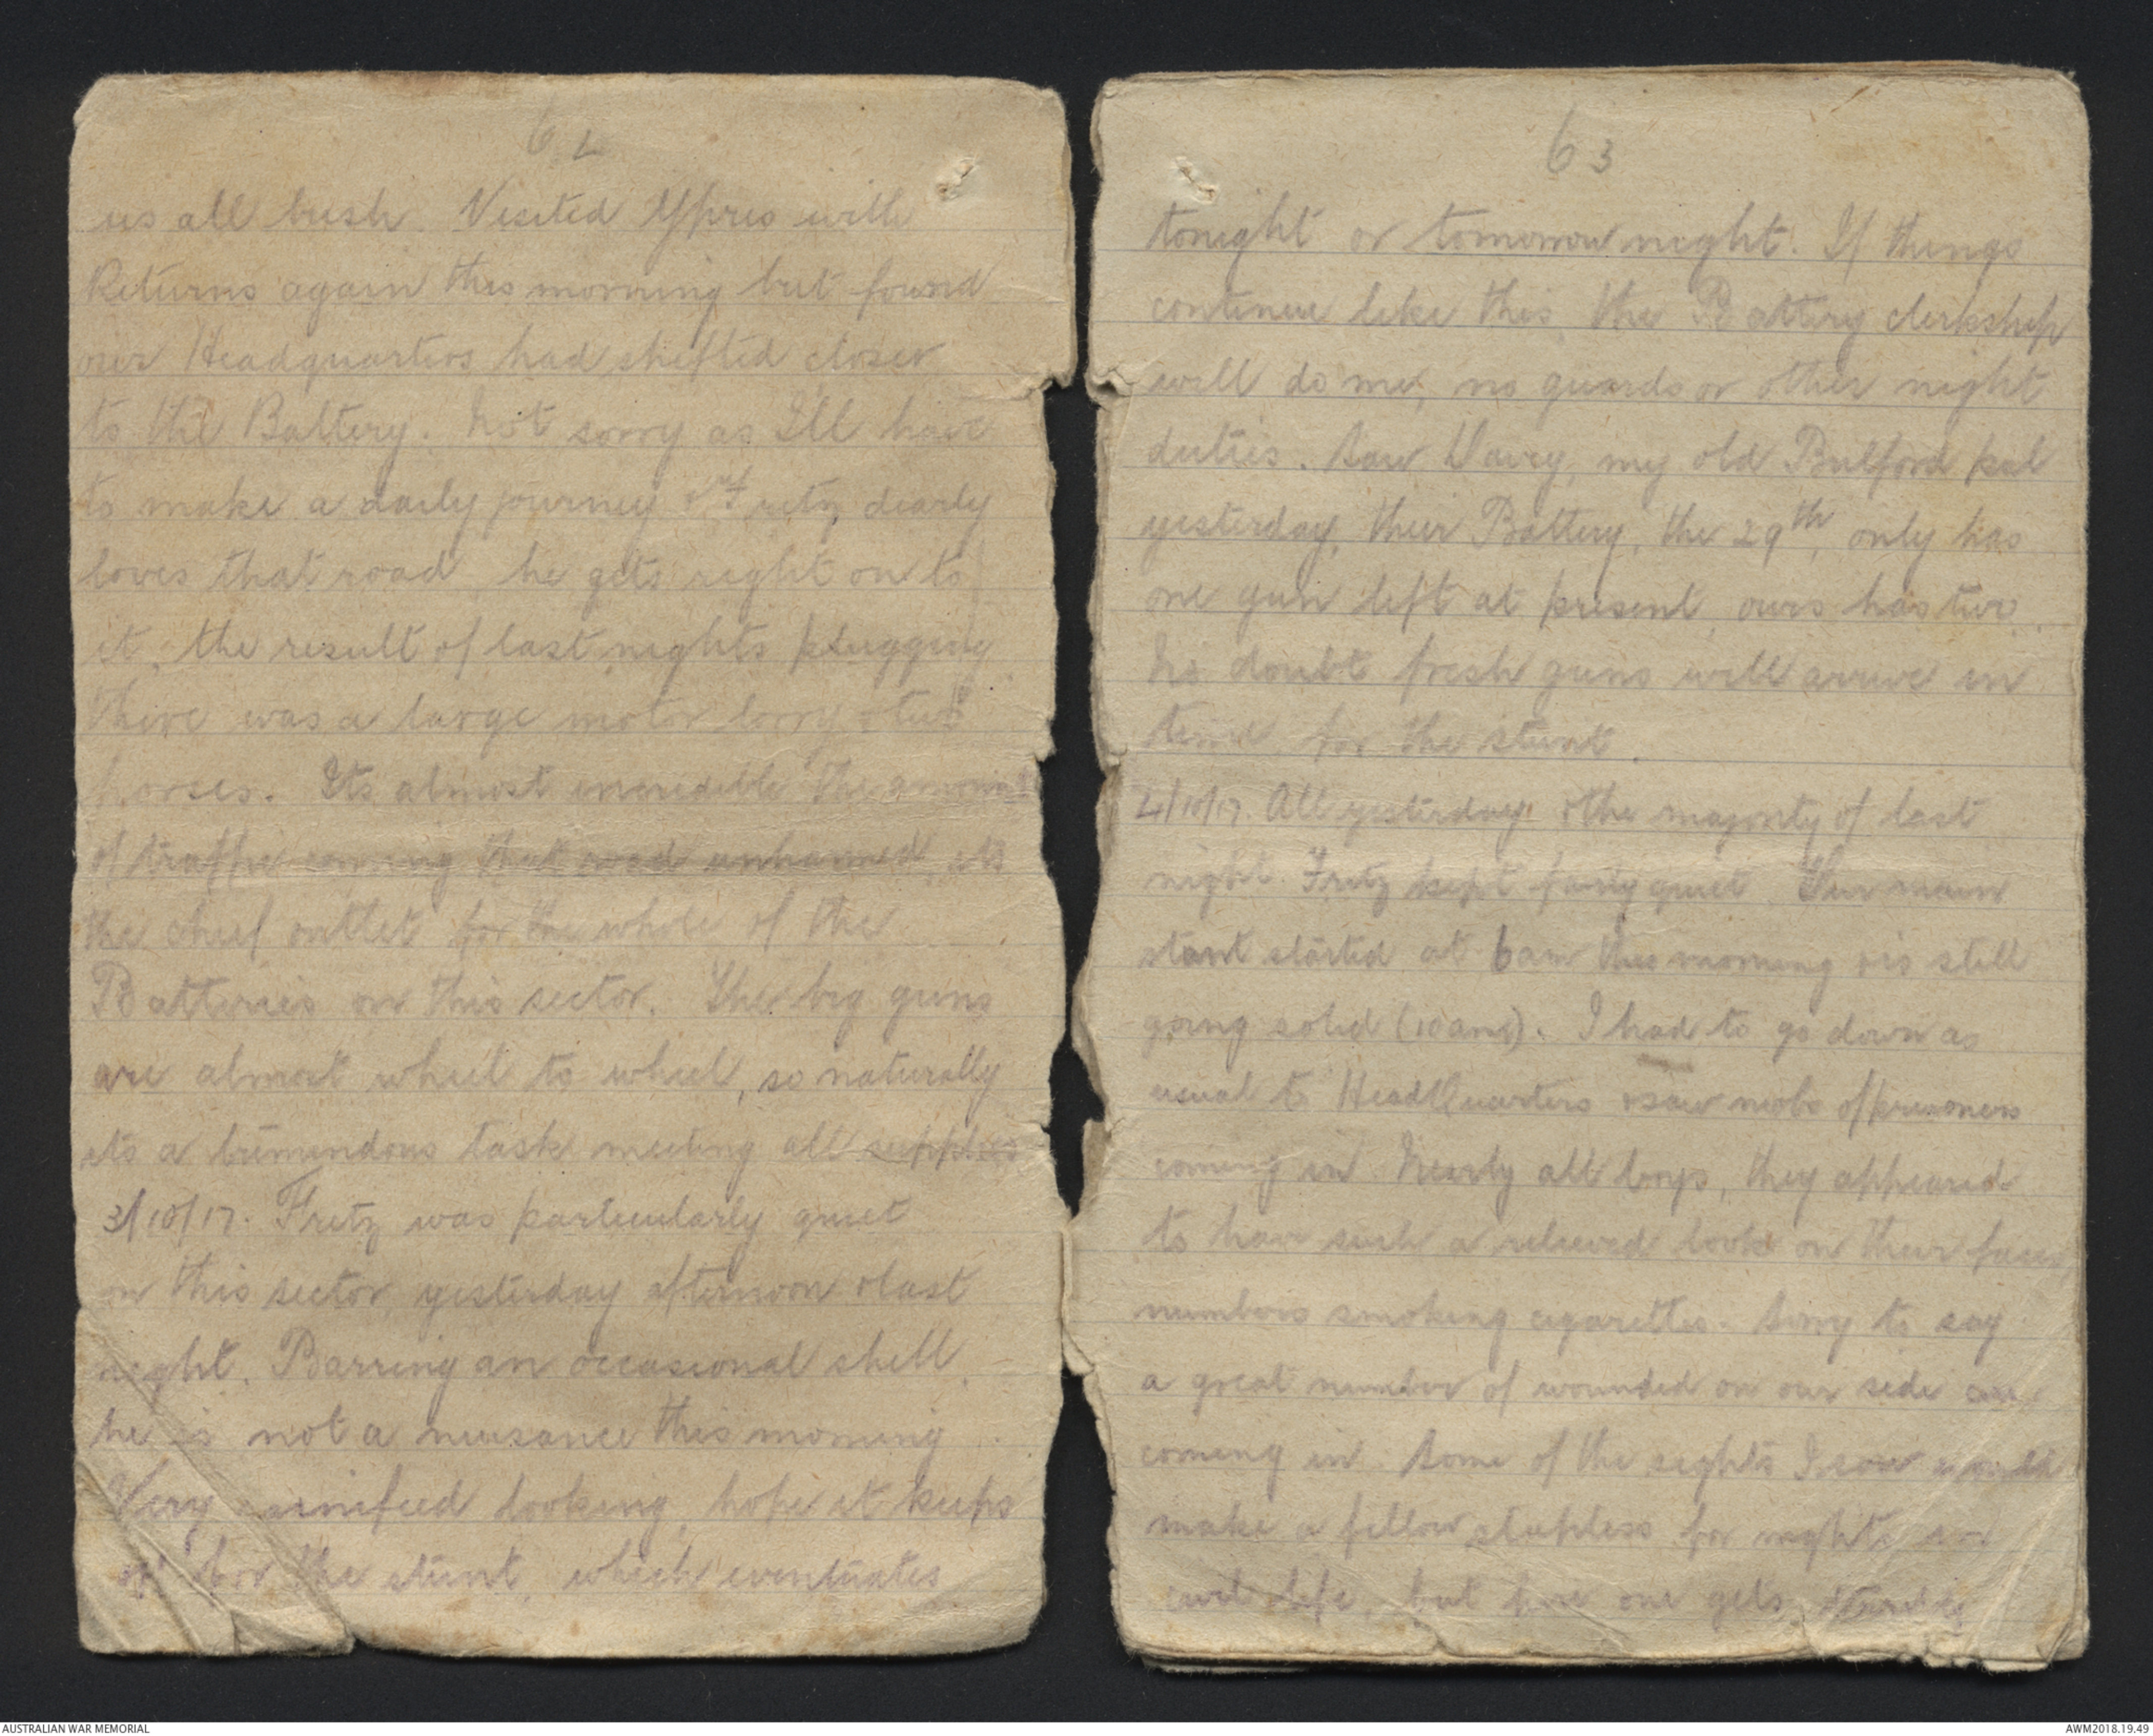 62
us all bush. Visited Ypres with
Returns again this morning but found
our Headquarters had shifted closer
to the Battery. Not sorry as I'll have
to make a daily journey & Fritz dearly
loves that road, he gets right on to
it, the result of last nights plugging
there was a large motor lorry & two
horses. Its almost incredible the amount
of traffic coming that road unharmed, its
the chief outlet for the whole of the
Batteries on this sector. The big guns
are almost wheel to wheel, so naturally
its a tremendous task meeting all supplies
3/10/17. Fritz was particularly quiet
on this sector, yesterday afternoon & last
night. Barring an occasional shell
he is not a nuisance this morning
Very looking, hope it keeps
off for the stunt, which eventuates
63
tonight or tomorrow night. If things
continue like this, the Battery clerkship
will do me, no guards or other night
duties. Saw Davey, my old Bulford pal
yesterday, their Battery, the 29th, only has
one gun left at present, ours has two.
No doubt fresh guns will arrive in
time for the stunt.
4/10/17. All yesterday & the majority of last
night Fritz kept fairly quiet. Our main
stunt started at 6am this morning & is still
going solid (10am). I had to go down as
usual to HeadQuarters & saw mobs of prisoners
coming in. Nearly all boys, they appeared
to have such a relieved look on their faces,
numbers smoking cigarettes. Sorry to say
a great number of wounded on our side are
coming in. Some of the sights I saw would
make a fellow sleepless for nights in
civil life, but here one gets
AUSTRALIAN WAR MEMORIAL
AWM2018.19.49